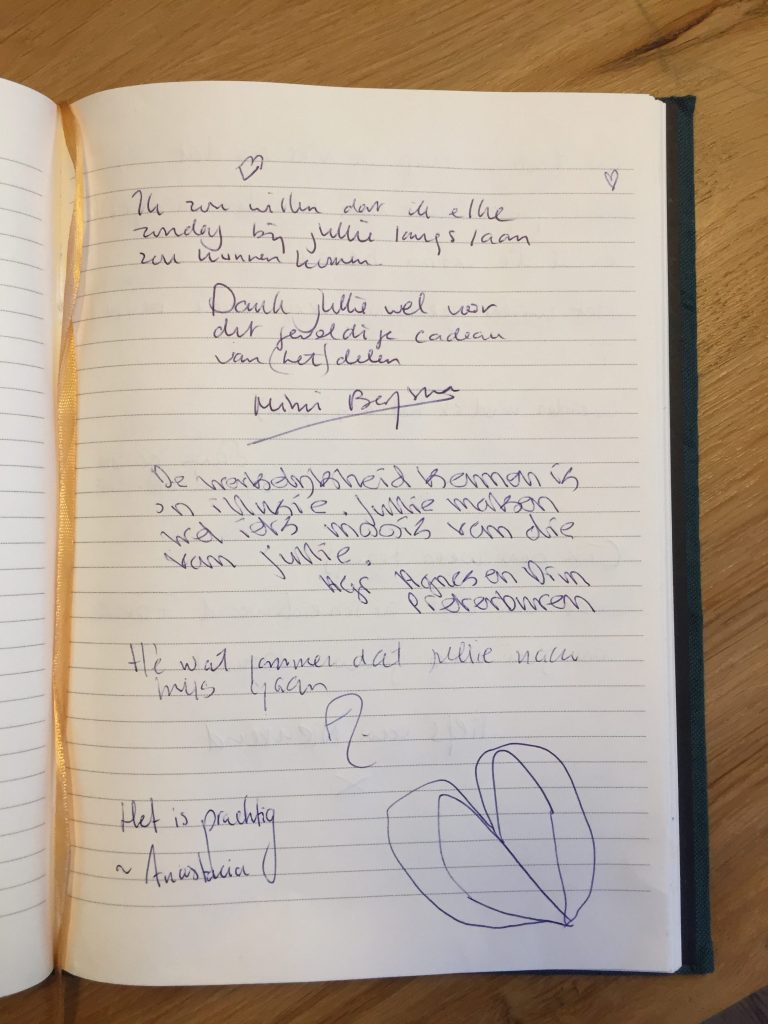 Ik zou willen dat ik elke
zondag bij jullie langs laan
zou kunnen komen
Dank jullie wel voor
dit geweldige cadeau
van (het) delen
Mimi
De werkelijkheid kennen is
'n illusie. Jullie maken
wel iets moois van die
van jullie.
Agnes en Wim
Pieterburen
Hè wat jammer dat jullie naar
huis gaan
Het is prachtig
~ Anastacia